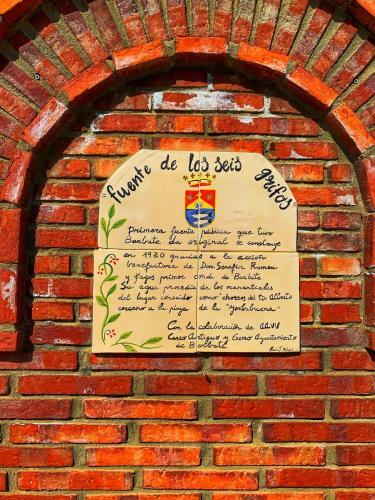 fuente de los seis grifos
primera fuente publica que tuvo
Barbate da original x construye
en 1930 gracias a la accion
benefactora de Don Serafin Romeu
y Fages primer conde de Barbate
Su agua procedia de los manantiales
del lugar conocido como chorros del tio Alberto
cercano a la playa de la "Yerbabuena"
Con la colaboración de AAVV
Casco Antiguo y Excmo Ayuntamiento
de Barbate